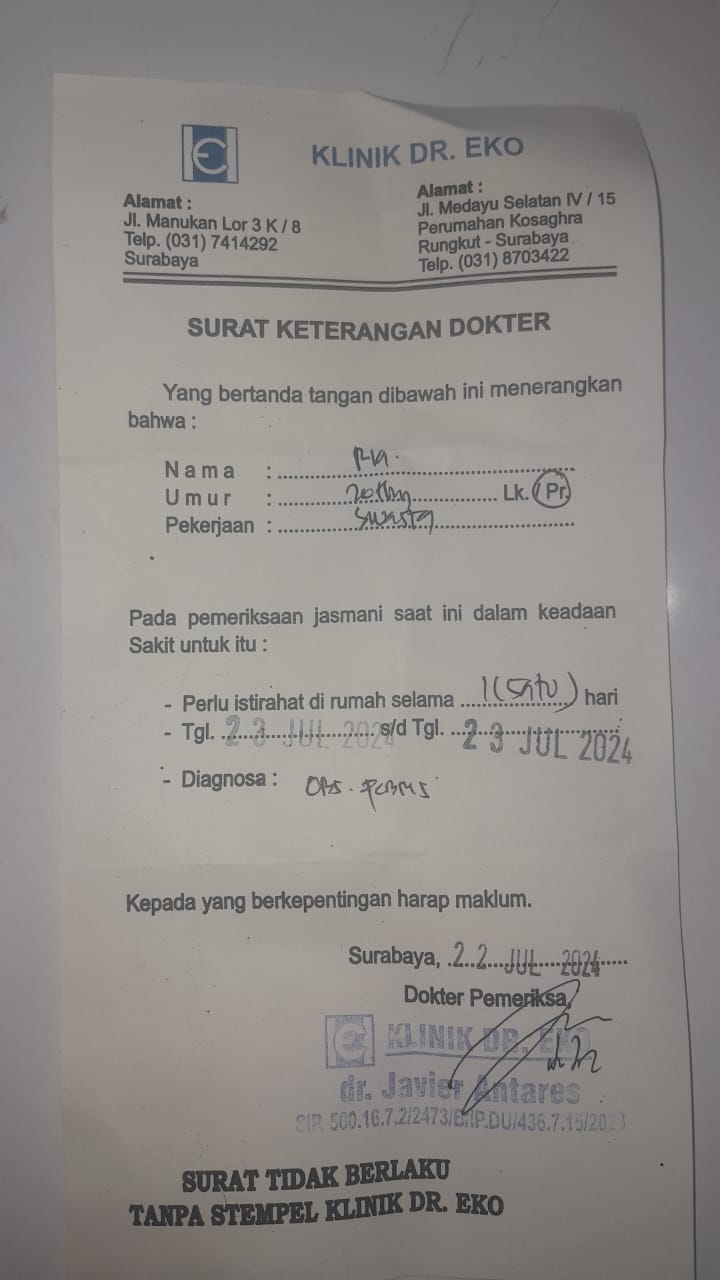 KLINIK DR. EKO
Alamat :
Jl. Manukan Lor 3 K / 8
Telp. (031) 7414292
Surabaya
Alamat :
Jl. Medayu Selatan IV / 15
Perumahan Kosaghra
Rungkut - Surabaya
Telp. (031) 8703422
SURAT KETERANGAN DOKTER
Yang bertanda tangan dibawah ini menerangkan
bahwa :
Nama :
Umur : Lk. / Pr.
Pekerjaan : Swasta
Pada pemeriksaan jasmani saat ini dalam keadaan
Sakit untuk itu :
- Perlu istirahat di rumah selama 1 (satu) hari
- Tgl. 23 JUL 2024 s/d Tgl. 23 JUL 2024
- Diagnosa : Obs.
Kepada yang berkepentingan harap maklum.
Surabaya, 22 JUL 2024
Dokter Pemeriksa,
KLINIK DR. EKO
dr. Javier Antares
SIP. 500.16.7.2/2473/B/IP.DU/436.7.15/2023
SURAT TIDAK BERLAKU
TANPA STEMPEL KLINIK DR. EKO